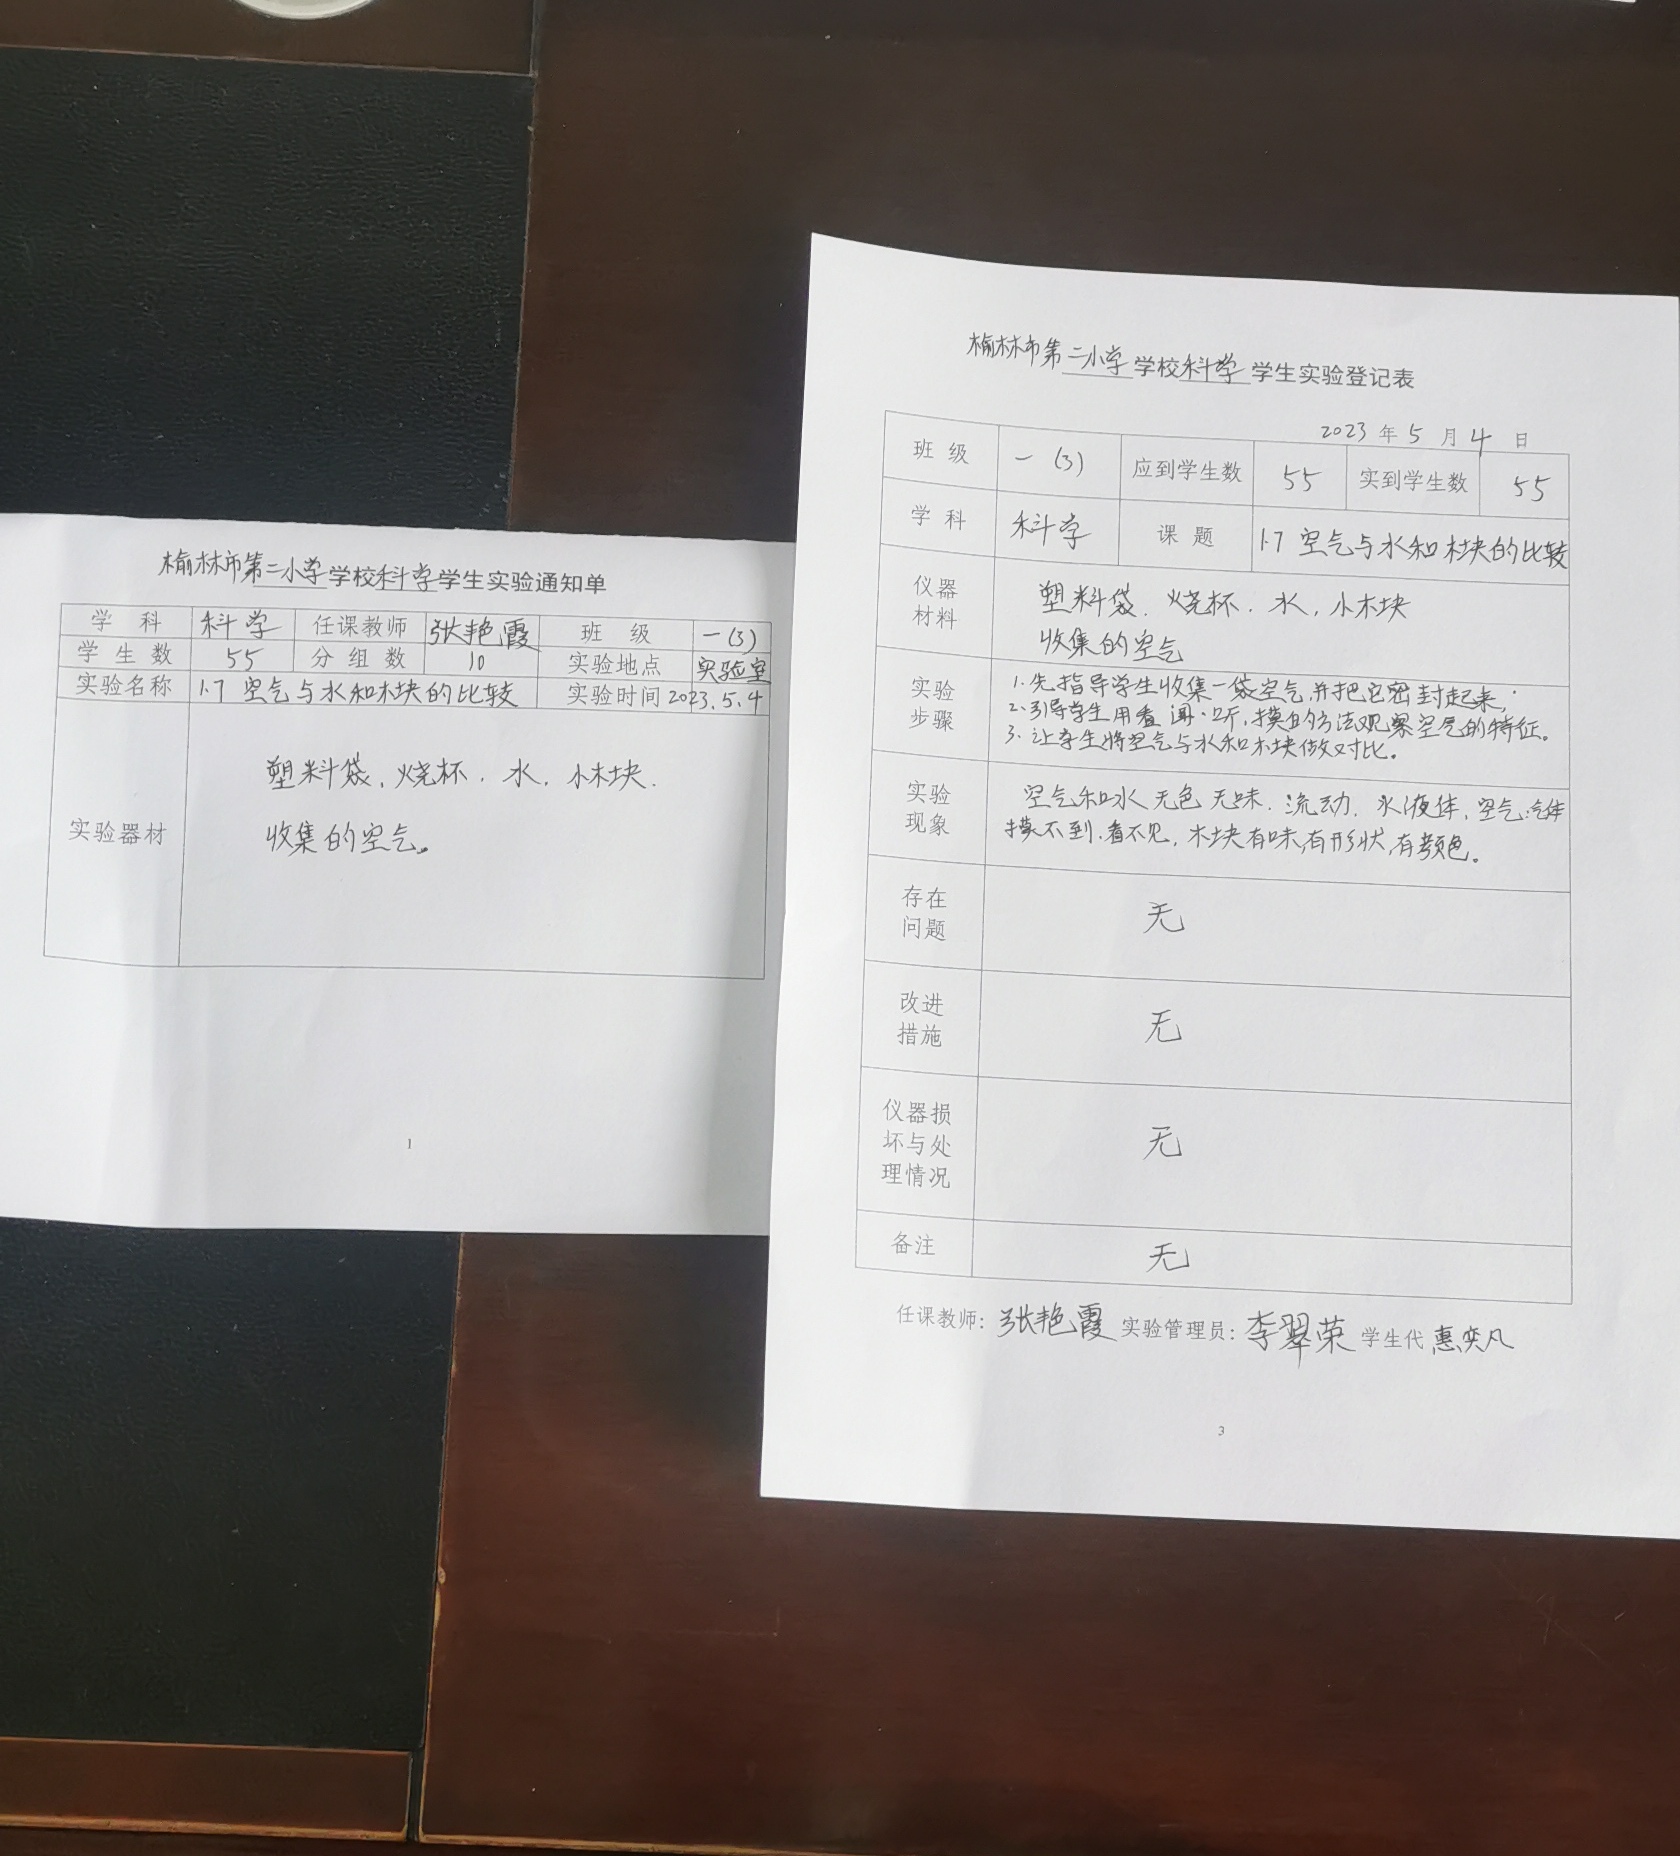 榆林市第二小学学校科学学生实验通知单
学 科 科学 任课教师 张艳霞 班 级 一(3)
学 生 数 55 分 组 数 10 实验地点 实验室
实验名称 1.7 空气与水和木块的比较 实验时间 2023.5.4
实验器材
塑料袋、烧杯、水、小木块.
收集的空气。
1
榆林市第二小学学校科学学生实验登记表
2023 年 5 月 4 日
班 级 一(3) 应到学生数 55 实到学生数 55
学 科 科学 课 题 1.7 空气与水和木块的比较
仪器
材料
塑料袋、烧杯、水,小木块
收集的空气
实验
步骤
1.先指导学生收集一袋空气,并把它密封起来;
2.引导学生用看、闻、听,摸的方法观察空气的特征。
3.让学生将空气与水和木块做对比。
实验
现象
空气和水 无色 无味、流动、水:液体,空气:气体
摸不到.看不见,木块有味,有形状,有颜色。
存在
问题
无
改进
措施
无
仪器损
坏与处
理情况
无
备注
无
任课教师: 张艳霞 实验管理员: 李翠荣 学生代 惠奕凡
3